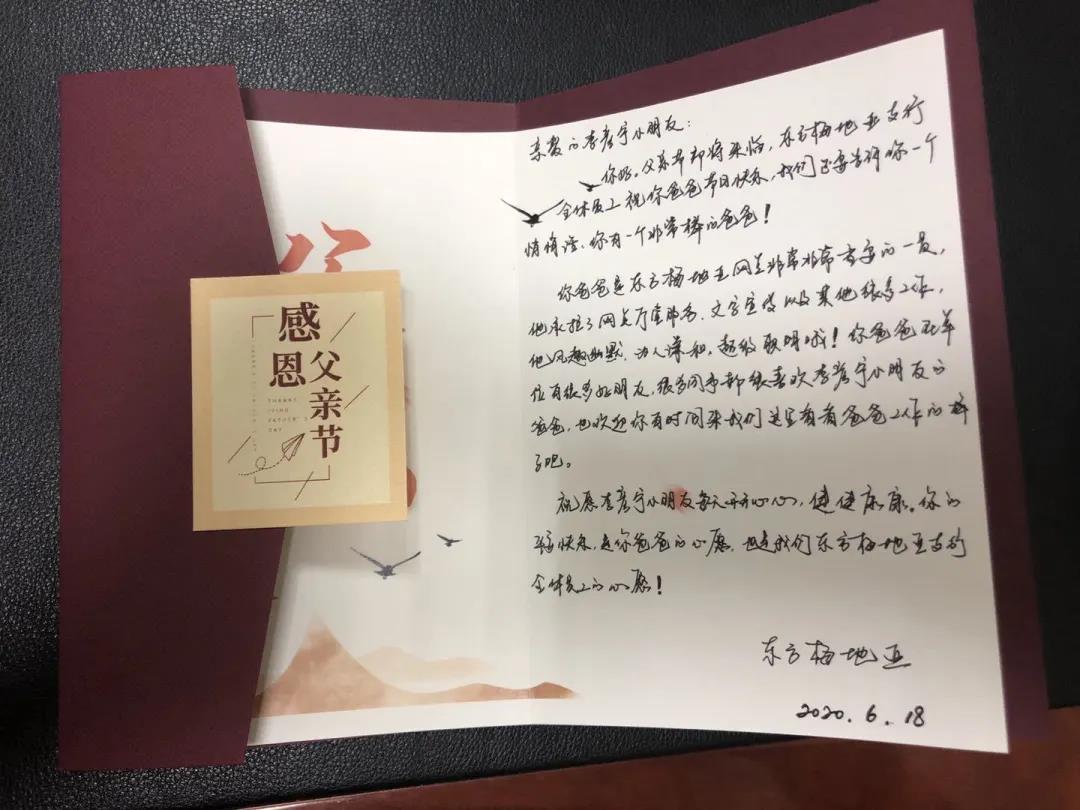 感恩
父亲节
THANKS
GIVING
FATHER'S
DAY
亲爱的李彦宇小朋友:
你好。父亲节即将来临,东方梅地亚支行
全体员工祝你爸爸节日快乐,我们还要告诉你一个
悄悄话,你有一个非常棒的爸爸!
你爸爸是东方梅地亚网点非常非常辛苦的一员,
他承担了网点厅堂服务、文字宣传以及其他很多工作,
他风趣幽默,为人谦和,超级聪明哦!你爸爸在单
位有很多好朋友,很多同事都很喜欢李彦宇小朋友的
爸爸,也欢迎你有时间来我们这里看看爸爸工作的样
子吧。
祝愿李彦宇小朋友每天开开心心,健健康康。你的
快乐,是你爸爸的心愿,也是我们东方梅地亚支行
全体员工的心愿!
东方梅地亚
2020.6.18